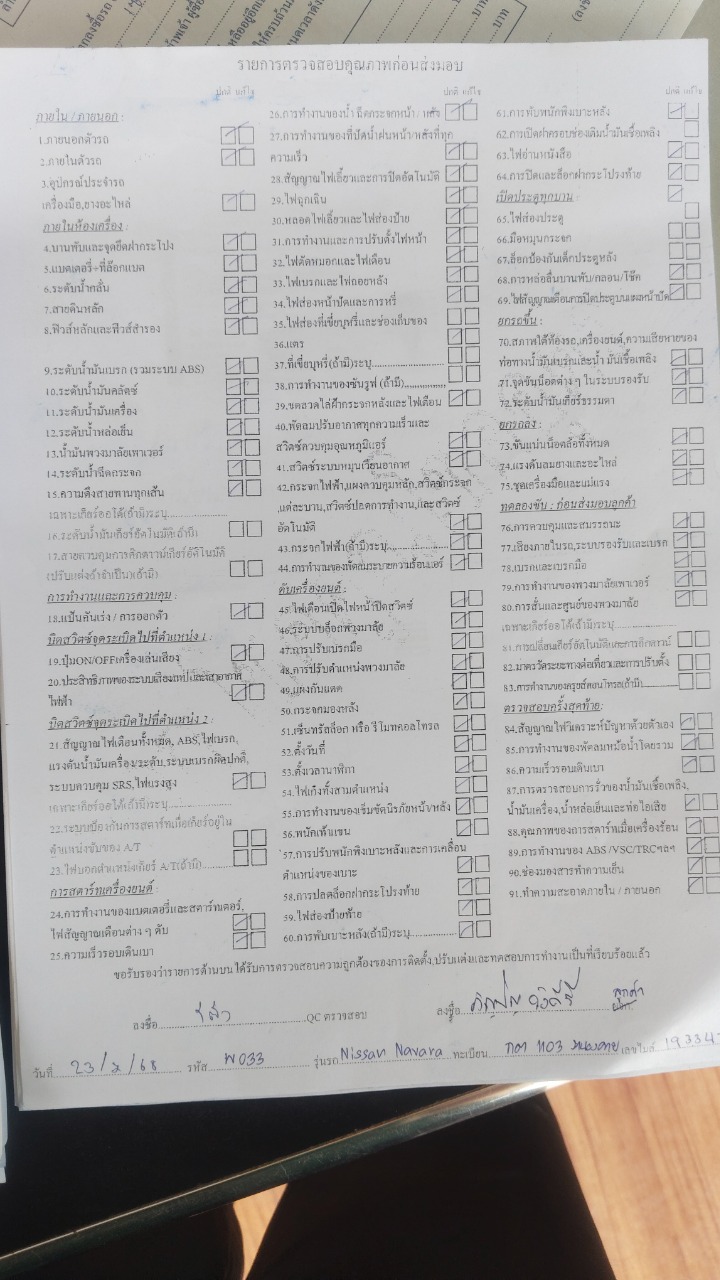 รายการตรวจสอบคุณภาพก่อนส่งมอบ
ปกติ แก้ไข
ภายใน / ภายนอก :
1.ภายนอกตัวรถ
2.ภายในตัวรถ
3.อุปกรณ์ประจำรถ
เครื่องมือ,ยางอะไหล่
ภายในห้องเครื่อง :
4.บานพับและจุดยึดฝากระโปง
5.แบตเตอรี่+ที่ล๊อกแบต
6.ระดับน้ำกลั่น
7.สายดินหลัก
8.ฟิวส์หลักและฟิวส์สำรอง
9.ระดับน้ำมันเบรก (รวมระบบ ABS)
10.ระดับน้ำมันคลัตช์
11.ระดับน้ำมันเครื่อง
12.ระดับน้ำหล่อเย็น
13.น้ำมันพวงมาลัยเพาเวอร์
14.ระดับน้ำฉีดกระจก
15.ความตึงสายพานทุกเส้น
เฉพาะเกียร์ออโต้(ถ้ามี)ระบุ
16.ระดับน้ำมันเกียร์อัตโนมัติ(ถ้ามี)
17.สายควบคุมการคิกดาวน์เกียร์อัตโนมัติ
(ปรับแต่งถ้าจำเป็น)(ถ้ามี)
การทำงานและการควบคุม :
18.แป้นคันเร่ง / การออกตัว
บิดสวิตช์จุดระเบิดไปที่ตำแหน่ง 1 :
19.ปุ่มON/OFFเครื่องเล่นเสียง
20.ประสิทธิภาพของระบบเสียงเทปและเสาอากาศ
ไฟฟ้า
บิดสวิตช์จุดระเบิดไปที่ตำแหน่ง 2 :
21.สัญญาณไฟเตือนทั้งหมด, ABS,ไฟเบรก,
แรงดันน้ำมันเครื่อง/ระดับ,ระบบเบรกผิดปกติ,
ระบบควบคุม SRS,ไฟแรงสูง
เฉพาะเกียร์ออโต้(ถ้ามี)ระบุ
22.ระบบป้องกันการสตาร์ทเมื่อเกียร์อยู่ใน
ตำแหน่งขับของ A/T
23.ไฟบอกตำแหน่งเกียร์ A/T(ถ้ามี)
การสตาร์ทเครื่องยนต์ :
24.การทำงานของแบตเตอรี่และสตาร์ทเตอร์,
ไฟสัญญาณเตือนต่าง ๆ ดับ
25.ความเร็วรอบเดินเบา
ปกติ แก้ไข
26.การทำงานของน้ำ ฉีดกระจกหน้า / หลัง
27.การทำงานของที่ปัดน้ำฝนหน้า/หลังที่ทุก
ความเร็ว
28.สัญญาณไฟเลี้ยวและการปิดอัตโนมัติ
29.ไฟฉุกเฉิน
30.หลอดไฟเลี้ยวและไฟส่องป้าย
31.การทำงานและการปรับตั้งไฟหน้า
32.ไฟตัดหมอกและไฟเตือน
33.ไฟเบรกและไฟถอยหลัง
34.ไฟส่องหน้าปัดและการหรี่
35.ไฟส่องที่เขี่ยบุหรี่และช่องเก็บของ
36.แตร
37.ที่เขี่ยบุหรี่(ถ้ามี)ระบุ
38.การทำงานของซันรูฟ (ถ้ามี)
29.ขดลวดไล่ฝ้ากระจกหลังและไฟเตือน
40.พัดลมปรับอากาศทุกความเร็วและ
สวิตช์ควบคุมอุณหภูมิแอร์
41.สวิตช์ระบบหมุนเวียนอากาศ
42.กระจกไฟฟ้า,แผงควบคุมหลัก,สวิตช์กระจก
,แต่ละบาน,สวิตช์ปลดการทำงาน,และสวิตช์
อัตโนมัติ
43.กระจกไฟฟ้า(ถ้ามี)ระบุ
44.การทำงานของพัดลมระบายความร้อนแอร์
ดับเครื่องยนต์ :
45.ไฟเตือนเปิดไฟหน้าปิดสวิตช์
46.ระบบบล็อกพวงมาลัย
47.การปรับเบรกมือ
48.การปรับตำแหน่งพวงมาลัย
49.แผงกันแดด
50.กระจกมองหลัง
51.เซ็นทรัลล็อก หรือ รีโมทคอลโทรล
52.ตั้งวันที่
53.ตั้งเวลานาฬิกา
54.ไฟเก๋งทั้งสามตำแหน่ง
55.การทำงานของเข็มขัดนิรภัยหน้า/หลัง
56.พนักเท้าแขน
57.การปรับพนักพิงเบาะหลังและการเคลื่อน
ตำแหน่งของเบาะ
58.การปลดล็อกฝากระโปรงท้าย
59.ไฟส่องป้ายท้าย
60.การพับเบาะหลัง(ถ้ามี)ระบุ
ปกติ แก้ไข
61.การพับพนักพิงเบาะหลัง
62.การเปิดฝาครอบช่องเติมน้ำมันเชื้อเพลิง
63.ไฟอ่านหนังสือ
64.การปิดและล็อกฝากระโปรงท้าย
เปิดประตูทุกบาน :
65.ไฟส่องประตู
66.มือหมุนกระจก
67.ล็อกป้องกันเด็กประตูหลัง
68.การหล่อลื่นบานพับ/กลอน/โช๊ค
69.ไฟสัญญาณเตือนการปิดประตูบนแผงหน้าปัด
ยกรถขึ้น :
70.สภาพใต้ท้องรถ,เครื่องยนต์,ความเสียหายของ
ท่อทางน้ำมันเบรกและน้ำ มันเชื้อเพลิง
71.จุดขันน็อตต่าง ๆ ในระบบรองรับ
72.ระดับน้ำมันเกียร์ธรรมดา
ยกรถลง :
73.ขันแน่นน็อตล้อทั้งหมด
74.แรงดันลมยางและอะไหล่
75.ชุดเครื่องมือและแม่แรง
ทดลองขับ : ก่อนส่งมอบลูกค้า
76.การควบคุมและสมรรถนะ
77.เสียงภายในรถ,ระบบรองรับและเบรก
78.เบรกและเบรกมือ
79.การทำงานของพวงมาลัยเพาเวอร์
80.การสั่นและศูนย์ของพวงมาลัย
เฉพาะเกียร์ออโต้(ถ้ามี)ระบุ
81.การเปลี่ยนเกียร์อัตโนมัติและการคิกดาวน์
82.มาตรวัดระยะทางต่อเที่ยวและการปรับตั้ง
83.การทำงานของครูซคอนโทรล(ถ้ามี)
ตรวจสอบครั้งสุดท้าย:
84.สัญญาณไฟวิเคราะห์ปัญหาด้วยตัวเอง
85.การทำงานของพัดลมหม้อน้ำโดยรวม
86.ความเร็วรอบเดินเบา
87.การตรวจสอบการรั่วของน้ำมันเชื้อเพลิง,
น้ำมันเครื่อง,น้ำหล่อเย็นและท่อไอเสีย
88.คุณภาพของการสตาร์ทเมื่อเครื่องร้อน
89.การทำงานของ ABS /VSC/TRCฯลฯ
90.ช่องมองสารทำความเย็น
91.ทำความสะอาดภายใน / ภายนอก
ขอรับรองว่ารายการด้านบนได้รับการตรวจสอบความถูกต้องของการติดตั้ง,ปรับแต่งและทดสอบการทำงานเป็นที่เรียบร้อยแล้ว
ลงชื่อ QC ตรวจสอบ ลงชื่อ ลูกค้า
วันที่ 23/ /68 รหัส W033 รุ่นรถ Nissan Navara ทะเบียน 1103 หนองคาย เลขไมล์ 193347